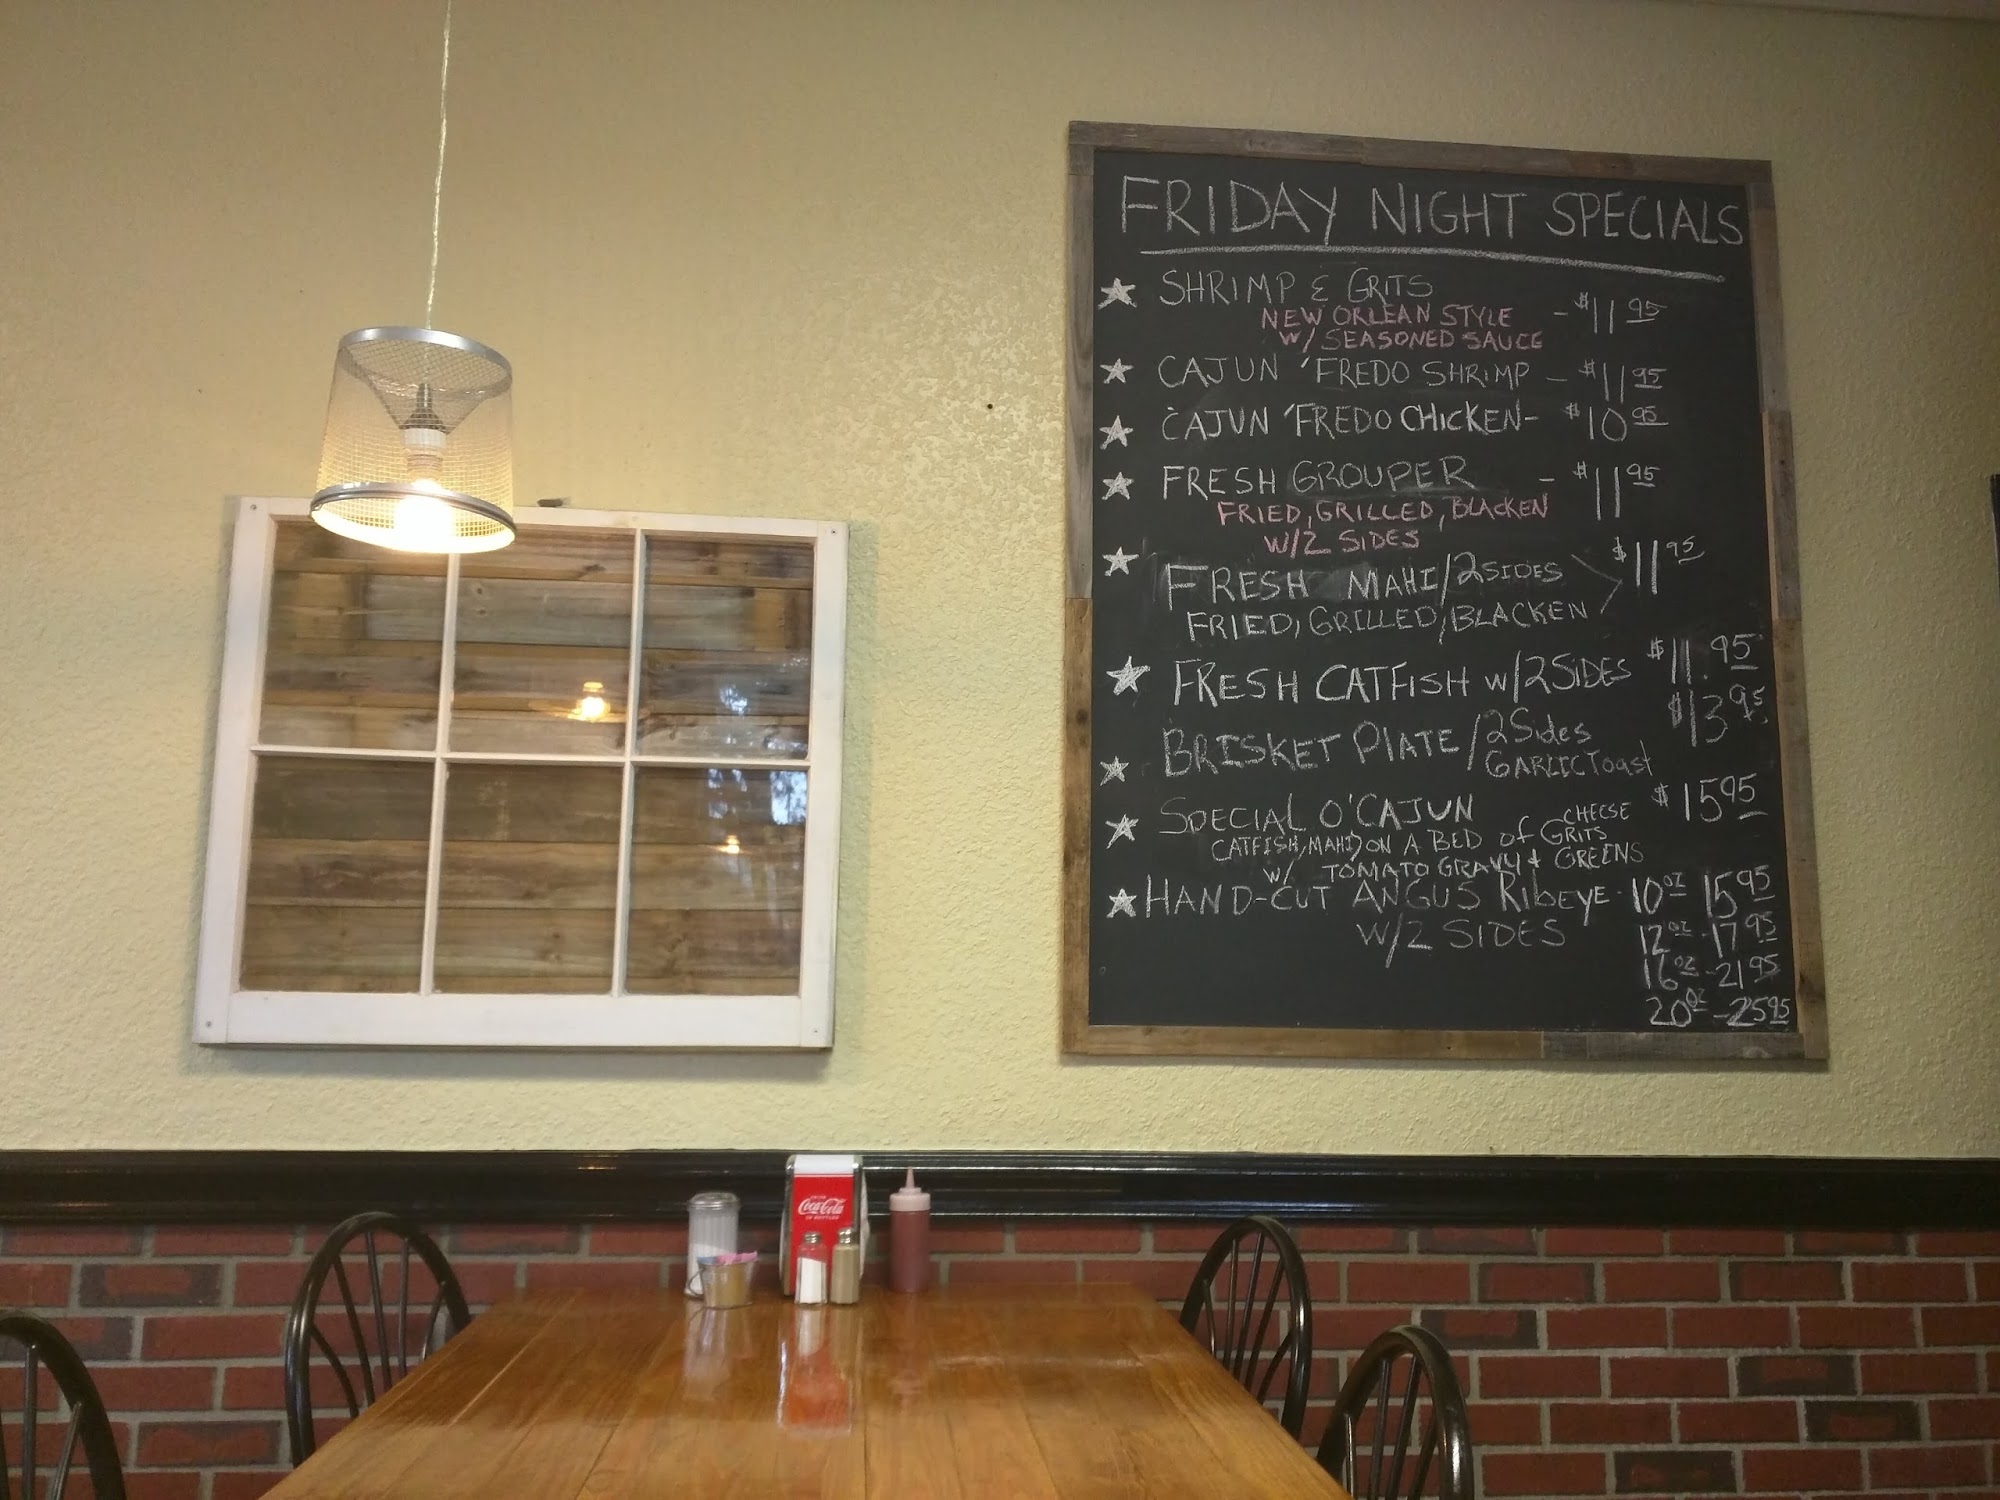 FRIDAY NIGHT SPECIALS
SHRIMP & GRITS
NEW ORLEAN STYLE - $11 95
W/ SEASONED SAUCE
CAJUN 'FREDO SHRIMP - $11 95
CAJUN 'FREDO CHICKEN - $10 95
FRESH GROUPER - $11 95
FRIED, GRILLED, BLACKEN
W/2 SIDES
FRESH MAHI/2 SIDES $11 95
FRIED, GRILLED, BLACKEN
FRESH CATFISH W/2 SIDES $11.95
BRISKET PLATE/2 Sides $13 95
GARLIC Toast
SPECIAL O'CAJUN $15 95
CATFISH, MAHI) ON A BED OF CHEESE GRITS
W/ TOMATO GRAVY & GREENS
HAND-CUT ANGUS RIbEYE - 10 OZ 15 95
W/2 SIDES 12 OZ - 17 95
16 OZ - 21 95
20 OZ - 25 95
Coca-Cola